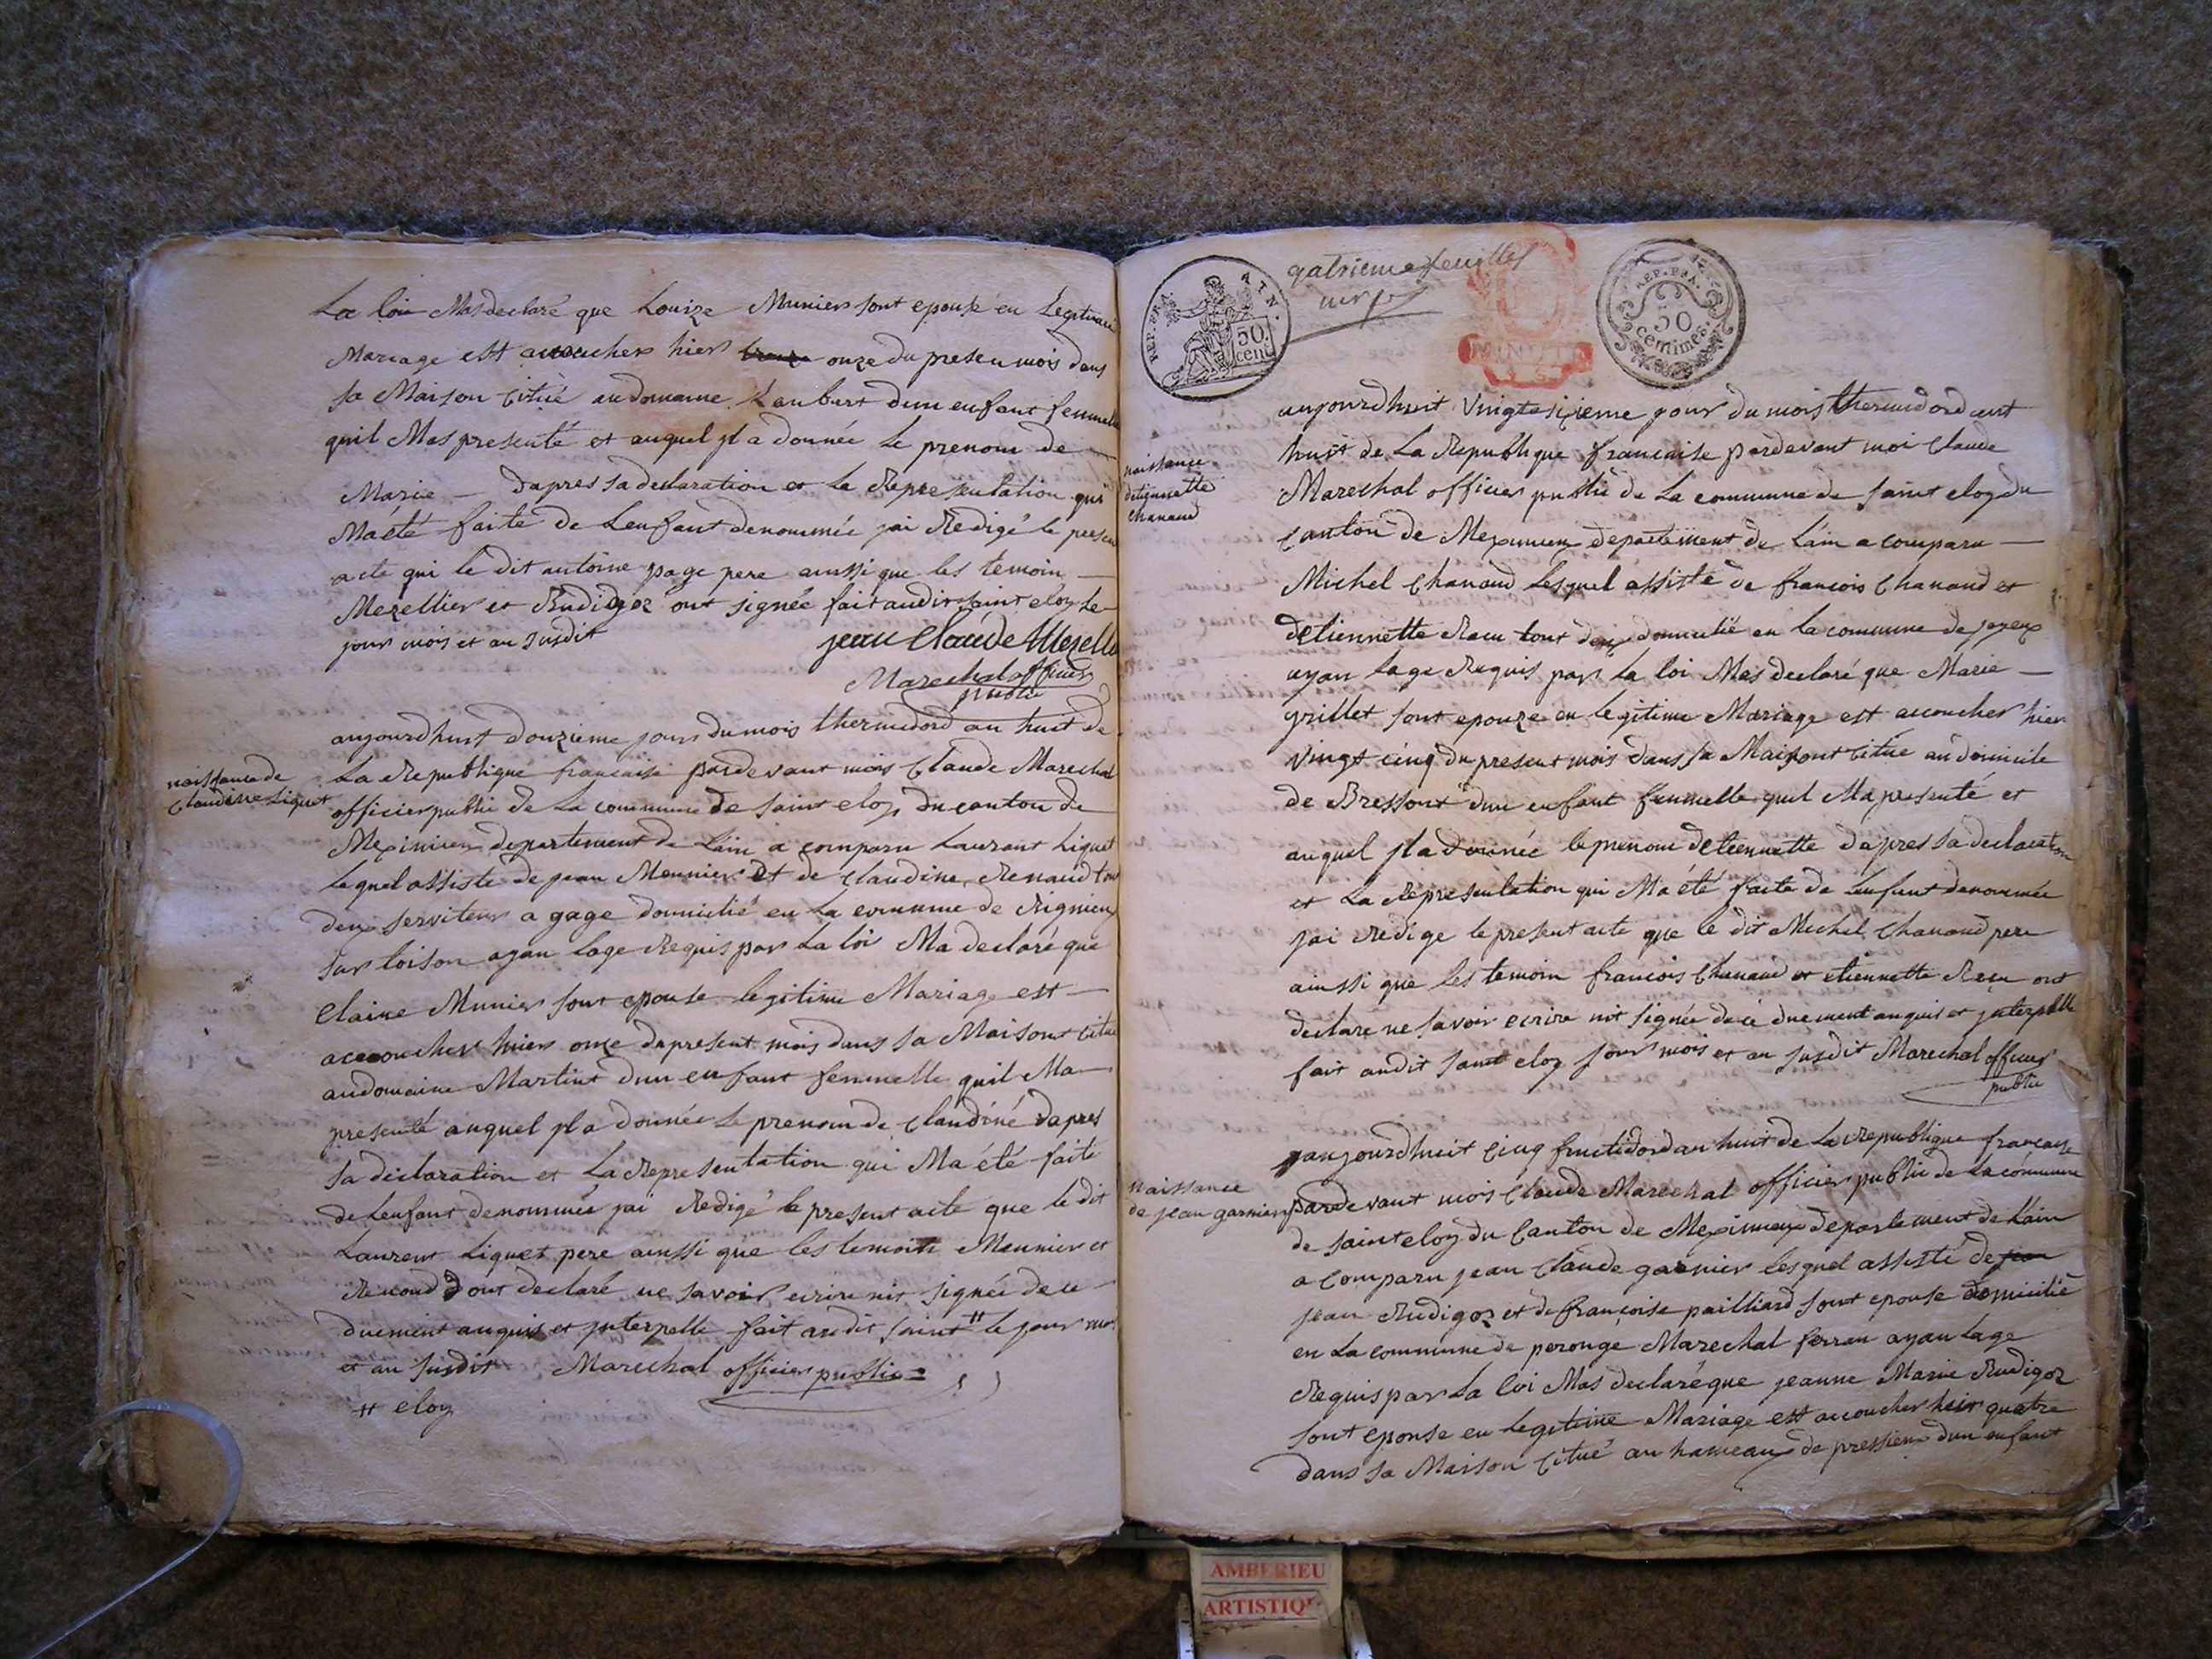 La loix Mas declaré que Louize Munier sont epouse en Legitime
Mariage est acoucher hier onze du presen mois dans
sa Maison Citué au domaine Lambert dun enfant femmelle
quil Mas presenté et auquel jl a donnée Le prenom de
Marie dapres sa declaration et la Representation qui
Ma été faite de Lenfant denommée jai Redigé le presen
acte qui le dit antoine page pere ainssi que les temoin
Mezellier et Rudigoz ont signée fait audit saint eloy le
jour mois et an susdit
jean Claude Mezelle
Marechal officier
public
aujourdhuit douzieme jour du mois thermidord an huit de
naissance de
Claudine Liguet
La Republique francaise pardevant mois Claude Marechal
officier public de La commune de saint eloy du canton de
Meximieu departement de Lain a comparu Laurant Liguet
Lequel assiste de jean Meunier et de Claudine Renaud tous
deux serviteur a gage domicilié en La commune de Rignieux
sur loison ayan Lage Requis par La loi Ma declaré que
Claire Munier sont epouse legitime Mariage est
accoucher hier onze du present mois dans sa Maisont Citué
au domaine Martint dun enfant femmelle quil Ma
presenté auquel jl a donnée Le prenom de Claudiné dapres
sa declaration et La Representation qui Ma été faite
de Lenfant denommée jai Redigé le present acte que le dit
Laurent Liguet pere ainssi que les temoin Meunier et
Renaud ont declaré ne savoir ecrire nit signée de ce
duement anquis et jnterpelle fait audit saint # le jour moi
et an susdit Marechal officier public
# eloy
qatrieme feuilles
REP. FRA.
50.
cent
REP. FRA.
50
Centimes.
aujourdhuit vingt sixieme jour du mois thermidord ant
huit de La Republique francaise pardevant moi Claude
naissance
detiennette
Chanaud
Marechal officier public de La commune de saint eloy du
Canton de Meximieux departement de Lain a comparu
Michel Chanaud Lesquel assisté de francois Chanaud et
detiennette Reau tout deux domicilié en la commune de joyeux
ayan Lage Requis par la loi Mas declaré que Marie
grillet sont epouze en legitime Mariage est accoucher hier
vingt cinq du present mois dans sa Maisont Citué au domicile
de Bressont dun enfant femmelle quil Ma presenté et
auquel jl a donnée le prenom detiennette dapres sa declaration
et La Representation qui Ma été faite de Lenfant denommée
jai Redige le present acte que le dit Michel Chanaud pere
ainssi que les temoin francois Chanaud et etiennette Reau ont
declare ne savoir ecrire nit signée de cé duement anquis et jnterpelle
fait audit saint eloy jour mois et an susdit Marechal officier
public
aujourdhuit Cinq fructidord an huit de La Republique francaise
naissance
de jean garnier
pardevant mois Claude Marechal officier public de La commune
de saint eloy du Canton de Meximieux departement de Lain
a Comparu jean Claude garnier lesquel assisté de jean
jean Rudigoz et de françoise pailliard sont epouse domicilié
en La commune de perouge Marechal ferran ayan Lage
Requis par La loi Mas declaré que jeanne Marie Rudigoz
sont epouse en Legitime Mariage est accoucher hier quatre
dans sa Maison Citué au hameaux de pressieux dun enfant
AMBERIEU
ARTISTIQ